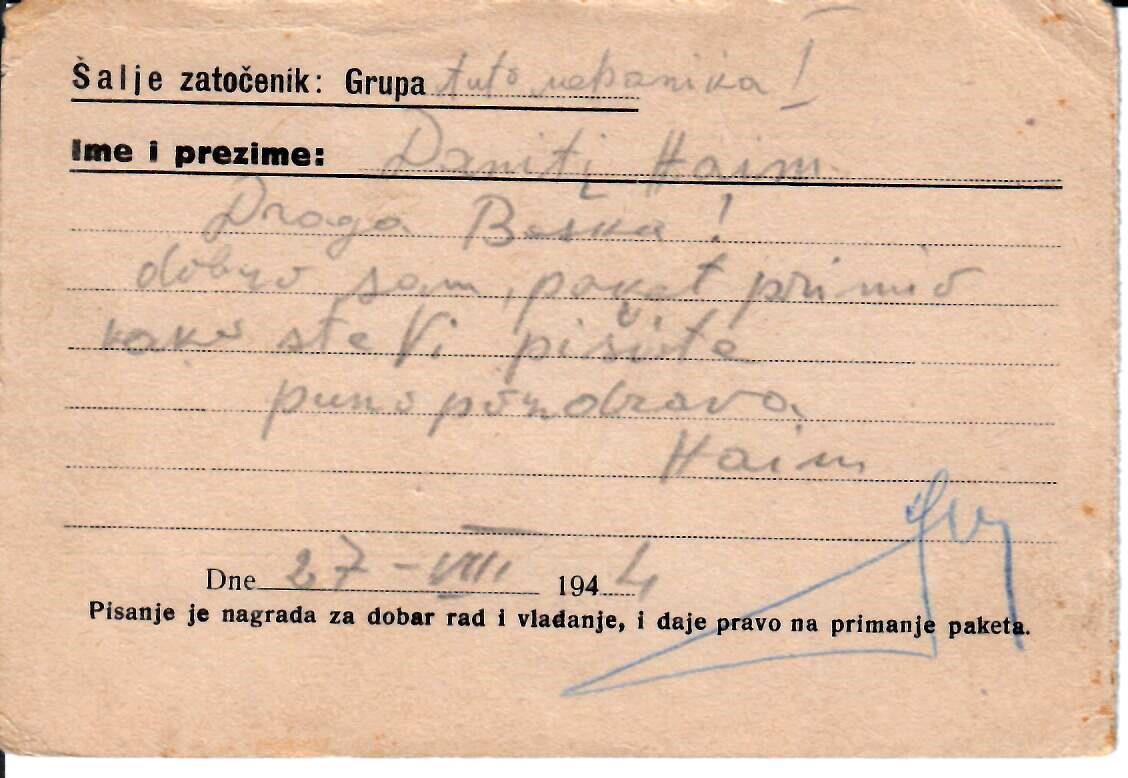 Šalje zatočenik: Grupa Auto mehanika I
Ime i prezime: Daniti Haim
Draga Beska!
dobro sam, paket primio
kako ste Vi pišite
puno pozdrava
Haim
Dne 27-VIII 1944
Pisanje je nagrada za dobar rad i vladanje, i daje pravo na primanje paketa.